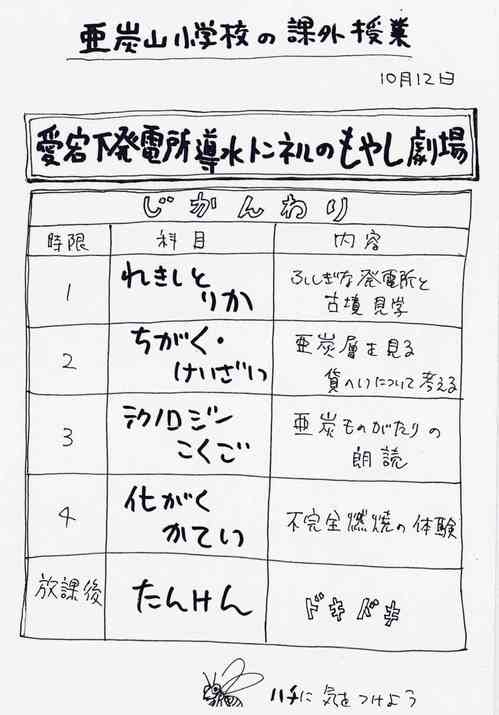 亜炭山小学校の課外授業
10月12日
愛宕下発電所導水トンネルのもやし劇場
じかんわり
時限 科目 内容
1 れきしと りか ふしぎな発電所と 古墳見学
2 ちがく・ けいざい 亜炭層を見る 貨へいについて考える
3 テクノロジー こくご 亜炭ものがたりの 朗読
4 化がく かてい 不完全燃焼の体験
放課後 たんけん ドキドキ
ハチに気をつけよう